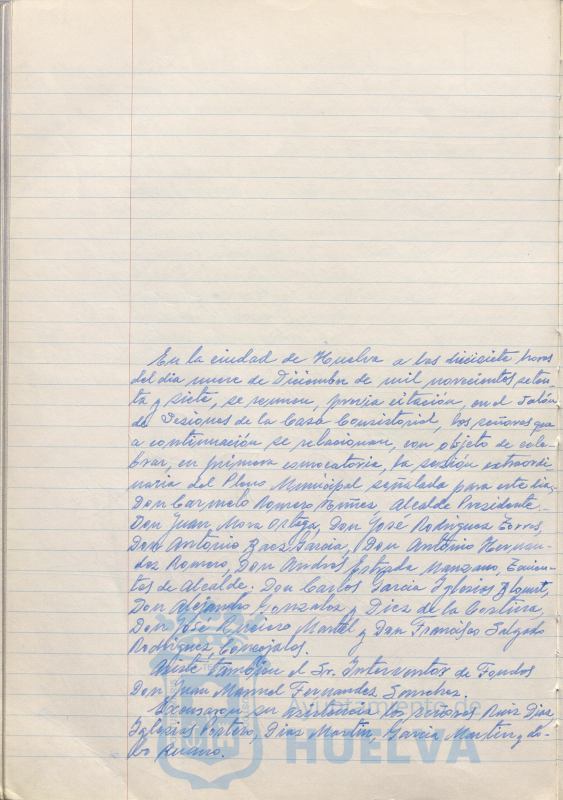 En la ciudad de Huelva a las diecisiete horas
del día nueve de Diciembre de mil novecientos seten-
ta y siete, se reunen, previa citación, en el Salón
de Sesiones de la Casa Consistorial, los señores que
a continuación se relacionan, con objeto de cele-
brar, en primera convocatoria, la sesión extraordi-
naria del Pleno Municipal señalada para este día.
Don Carmelo Romero Núñez, Alcalde Presidente.-
Don Juan Mora Ortega, Don José Rodriguez Torres,
Don Antonio Baez Garcia, Don Antonio Hernan-
dez Romero, Don Andrés Estrada Manzano, Tenien-
tes de Alcalde. Don Carlos Garcia Iglesias
Don Alejandro Gonzalez y Diez de la Cortina,
Don José Martel y Don Francisco Salgado
Rodriguez, Concejales.
Asiste tambien el Sr. Interventor de Fondos
Don Juan Manuel Fernandez Sanchez.
Excusaron su asistencia los señores Ruiz Diaz
Iglesias Portero, Dias Martin, Garcia Martin y Lo-
bo
Ayuntamiento de
HUELVA